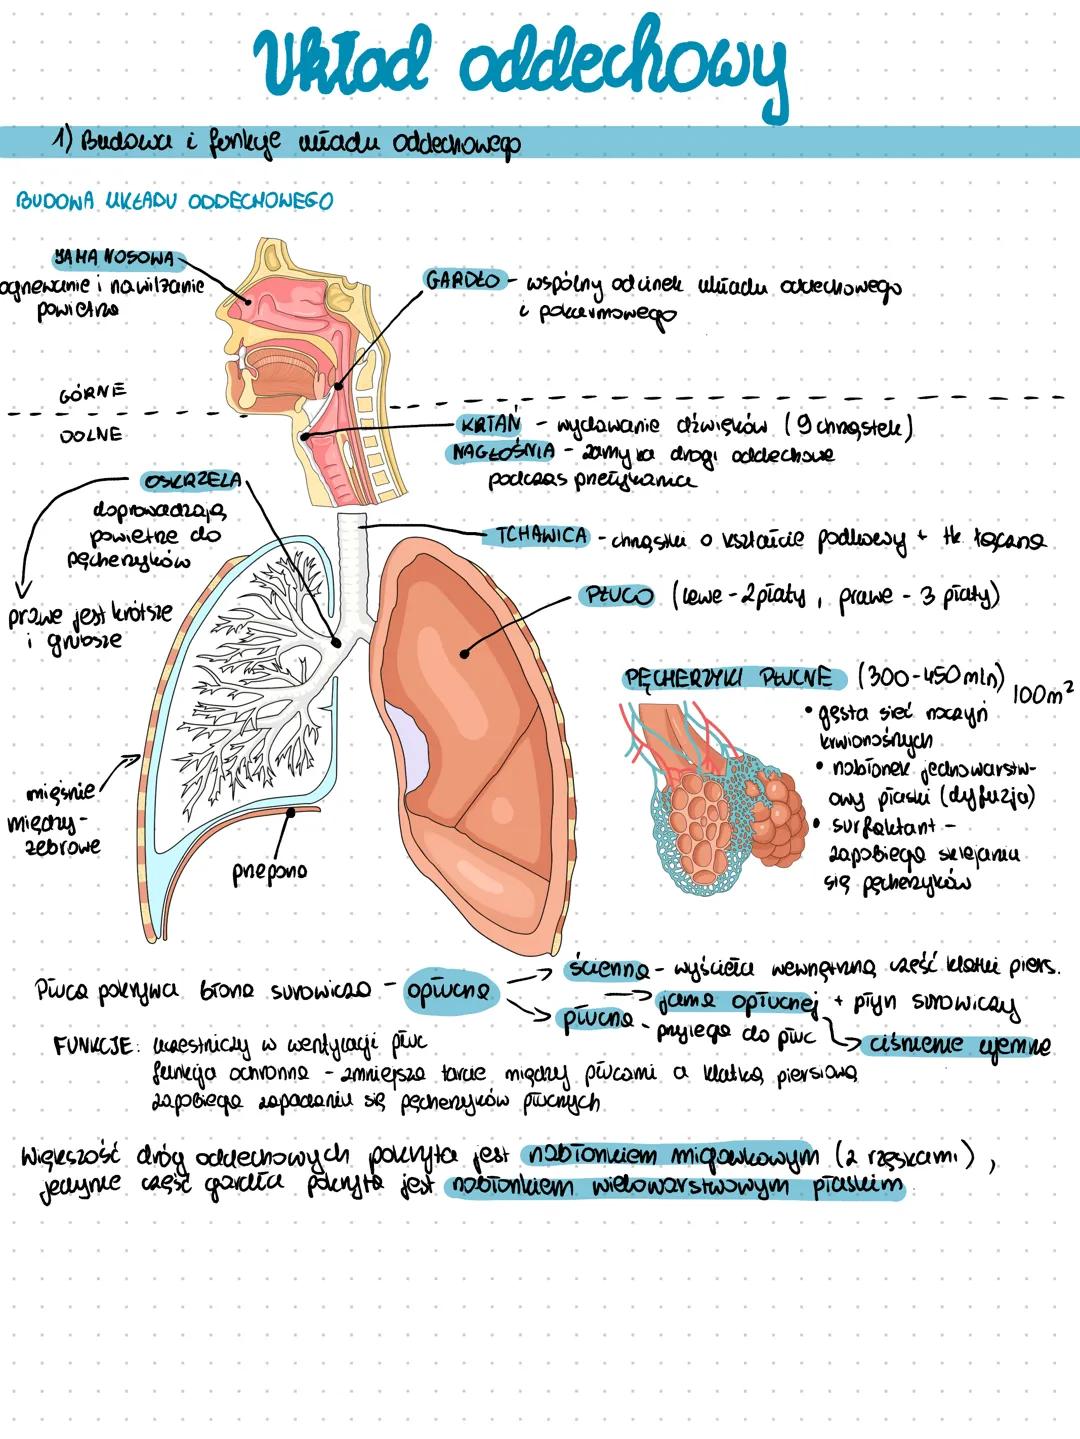 Układ oddechowy
1) Budowa i funkcje układu oddechowego
BUDOWA UKŁADU ODDECHOWEGO
JAMA NOSOWA
ogrzewanie i nawilżanie
powietrza
GARDŁO - wspólny odcinek układu oddechowego
i pokarmowego
GÓRNE
DOLNE
KRTAŃ - wydawanie dźwięków (9 chrząstek)
NAGŁOŚNIA - zamyka drogi oddechowe
podczas przełykania
OSKRZELA
doprowadzają
powietrze do
pęcherzyków
prawe jest krótsze
i grubsze
TCHAWICA - chrząstki o kształcie podkowy + tk. łączna
PŁUCO (lewe - 2 płaty, prawe - 3 płaty)
PĘCHERZYKI PŁUCNE (300-450 mln) 100m²
• gęsta sieć naczyń
krwionośnych
• nabłonek jednowarstw-
owy płaski (dyfuzja)
• surfaktant -
zapobiega sklejaniu
się pęcherzyków
mięśnie
między-
żebrowe
przepona
Płuca pokrywa błona surowicza - opłucna
ścienna - wyściela wewnętrzną część klatki piers.
jama opłucnej + płyn surowiczy
płucna - przylega do płuc
ciśnienie ujemne
FUNKCJE: uczestniczy w wentylacji płuc
funkcja ochronna - zmniejsza tarcie między płucami a klatką piersiową
zapobiega zapadaniu się pęcherzyków płucnych
Większość dróg oddechowych pokryta jest nabłonkiem migawkowym (z rzęskami),
jedynie część gardła pokryta jest nabłonkiem wielowarstwowym płaskim